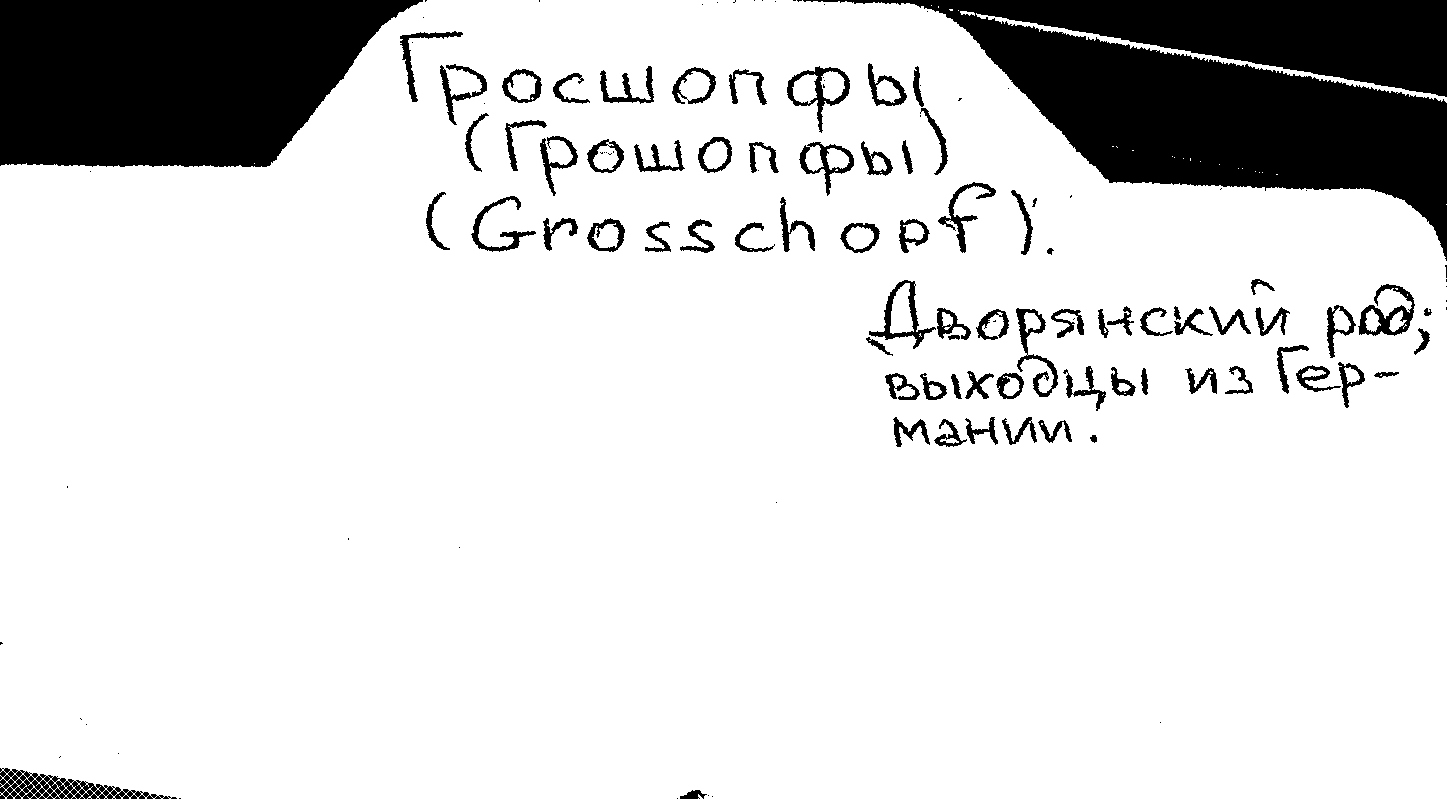 Гросшопфы
(Грошопфы)
(Grosschopf).
Дворянский род;
выходцы из Гер-
мании.